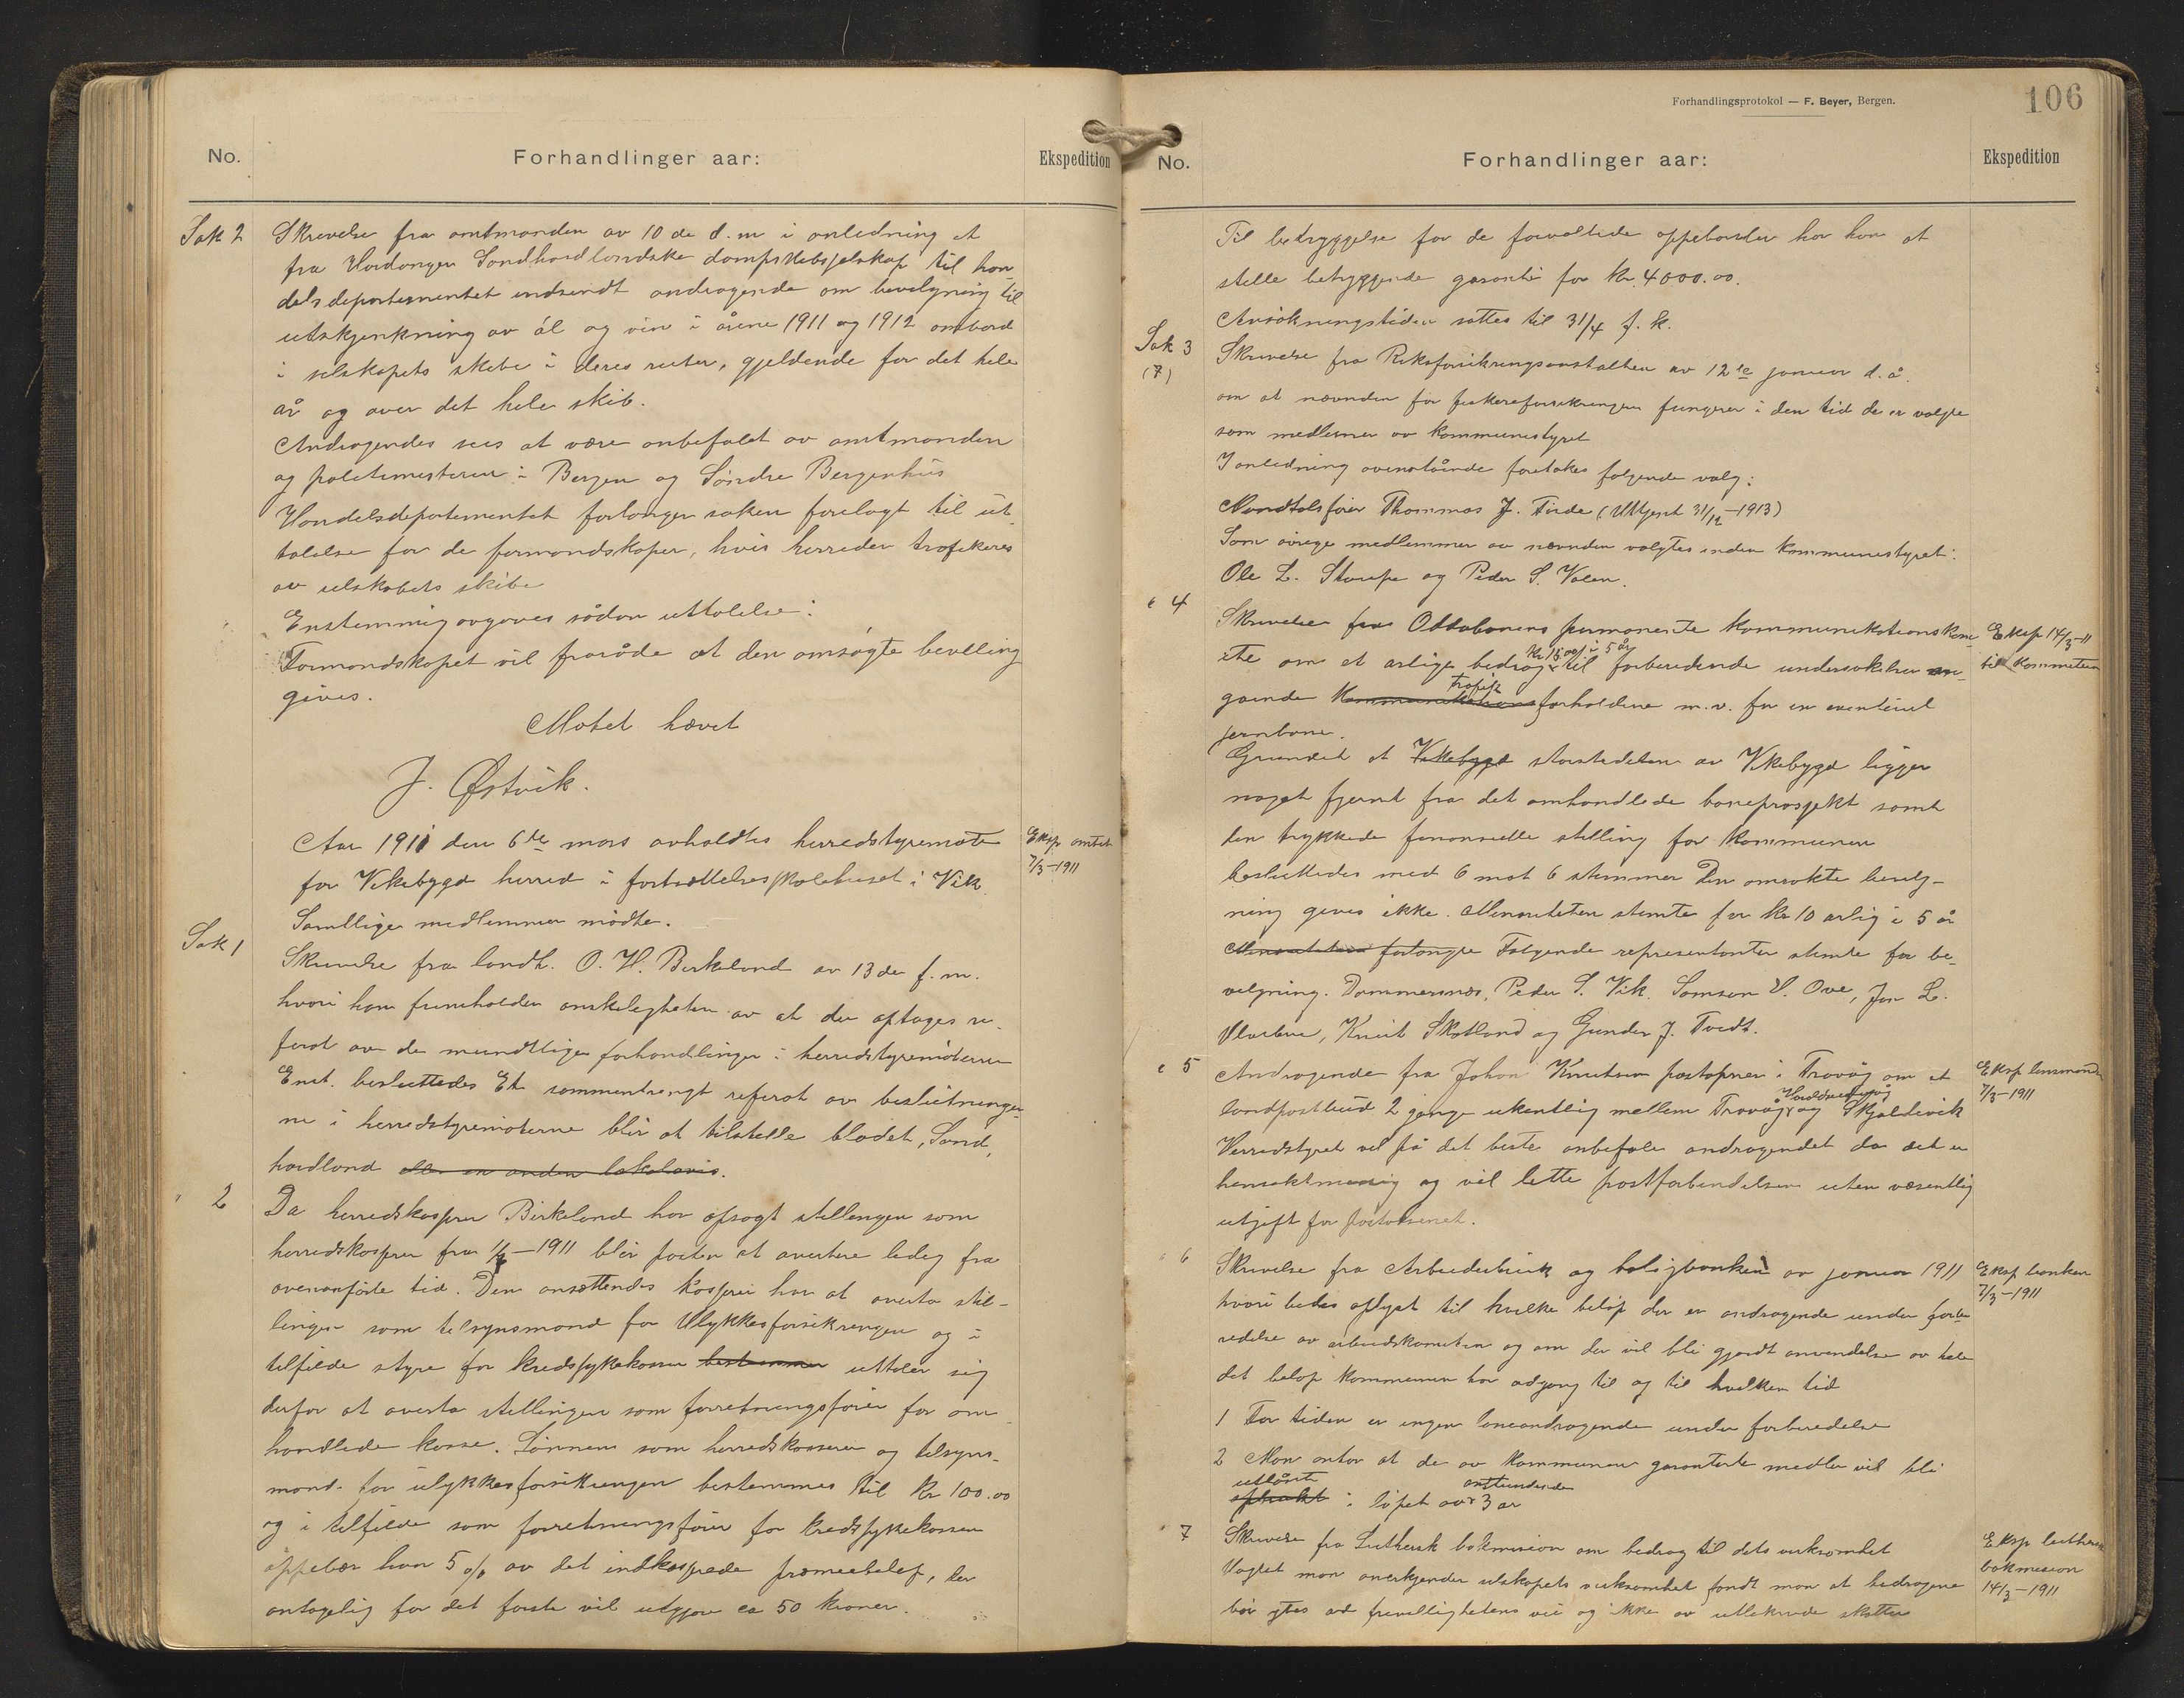 No.
Forhandlinger aar:
Ekspedition
Sak 2
Skrivelse fra amtmanden av 10 de d.m i anledning et
fra Hardanger Søndhordlandske dampskibsselskap til han-
delsdepartementet indsendt andragende om bevilgning til
utskjenkning av øl og vin i årene 1911 og 1912 ombord
i selskapets skibe i deres ruter, gjeldende for det hele
år og over det hele skib.
Andragendes sees at være anbefalet av amtmanden
og politimesteren i Bergen og Søndre Bergenhus
Handelsdepartementet forlanger saken forelagt til ut-
talelse for de formandskaper, hvis herreder trafikeres
av selskabets skibe
Enstemmig avgaves sådan uttalelse:
Formandskapet vil fraråde at den omsøgte bevilling
gives.
Møtet hævet
J. Østvik.
Aar 1911 den 6te mars avholdtes herredstyremøte
for Vikebygd herred i fortsættelsesskolehuset i Vik.
Samtlige medlemmer mødte.
Eksp amtet
7/3-1911
Sak 1
Skrivelse fra landh. O. H. Birkeland av 13 de f. m.
hvori han fremholder ønskeligheten av at der optages re-
ferat av de mundtlige forhandlinger i herredstyremøterne
Enst. besluttedes Et sammentrængt referat av beslutninge-
ne i herredstyremøterne blir at tilstelle bladet, Sønd-
hordland eller en anden lokalavis.
" 2
Da herredskasserer Birkeland har opsagt stillingen som
herredskasserer fra 1/7-1911 blir posten at avertere ledig fra
ovenanførte tid. Den ansættendes kasserer har at overta stil-
lingen som tilsynsmand for Ulykkesforsikringen og i
tilfelde styre for kredssykekassen bestemmer uttaler sig
derfor at overta stillingen som forretningsfører for om-
handlede kasse. Lønnen som herredskasserer og tilsyns-
mand for ulykkesforsikringen bestemmes til kr 100.00
og i tilfelde som forretningsfører for kredssykekassen
oppebær han 5 o/o av det indkasserede præmiebeløp, der
antagelig for det første vil utgjøre ca 50 kroner.
Forhandlingsprotokol — F. Beyer, Bergen.
106
No.
Forhandlinger aar:
Ekspedition
Til betryggelse for de forvaltede oppebørsler har han at
stille betryggende garanti for kr. 4000.00.
Ansøkningstiden sættes til 31/4 f. k.
Sak 3
(7)
Skrivelse fra Riksforsikringsanstalten av 12te januar d. å.
om at nævnden for fiskerforsikringen fungerer i den tid de er valgte
som medlemer av kommunestyret
I anledning ovenstående foretakes følgende valg:
Mandtalsfører Thommas J. Tinde (Uttjent 31/12-1913)
Som øvrige medlemmer av nævnden valgtes inden kommunestyret:
Ole L. Stumpe og Peder S. Valen.
" 4
Skrivelse fra Ottabanens permanente kommunikationskom-
ite om et årlige bedrag kr 15.00 i 5 år til forberedende undersøkelser an-
gaende kommunikations trafik forholdene m.v. for en eventuel
jernbane.
Eksp 14/3-11
til kommiteen
Grundet at Vikebygd størstedelen av Vikebygd ligger
noget fjernt fra det omhandlede baneprosjekt samt
den trykkede finansielle stilling for kommunen
besluttedes med 6 mot 6 stemmer Den omsøkte bevilg-
ning gives ikke. Minoriteten stemte for kr 10 arlig i 5 år
Minoriteten forlangte Følgende representanter stemte for be-
vilgning. Dommersnes, Peder S. Vik. Samson V. Ove, Jon L.
Knut Skotland og Gunder J. Tvedt.
" 5
Andragende fra Johan Knutsen postopner i Trovåg om et
landpostbud 2 gange ukentlig mellem Trovåg og Skjoldevik
Herredstyret vil på det beste anbefale andragendet da det er
hensiktmæssig og vil lette postforbindelsen uten væsentlig
utgift for postvæsenet.
Eksp lensmand
7/3-1911
" 6
Skrivelse fra Arbeiderbruk og boligbanken av januar 1911
hvori bedes oplyst til hvilke beløp der er andragende under forbe-
redelse av arbeidskomiten og om der vil bli gjordt anvendelse av hele
det beløp kommunen har adgang til og til hvilken tid
1 For tiden er ingen laneandragende under forberedelse
2 Man antar at de av kommunen garanterte midler vil bli
utlånte opbrukt i løpet av anstundende 3 ar
Eksp banken
7/3-1911
" 7
Skrivelse fra Luthersk bokmision om bedrag til dets virksomhet
Uagtet man anerkjender selskapets virksomhet fandt man at bedragene
bør ytes ad frivillighetens vei og ikke av utliknede skatter
Eksp luthersk
bokmision
14/3-1911